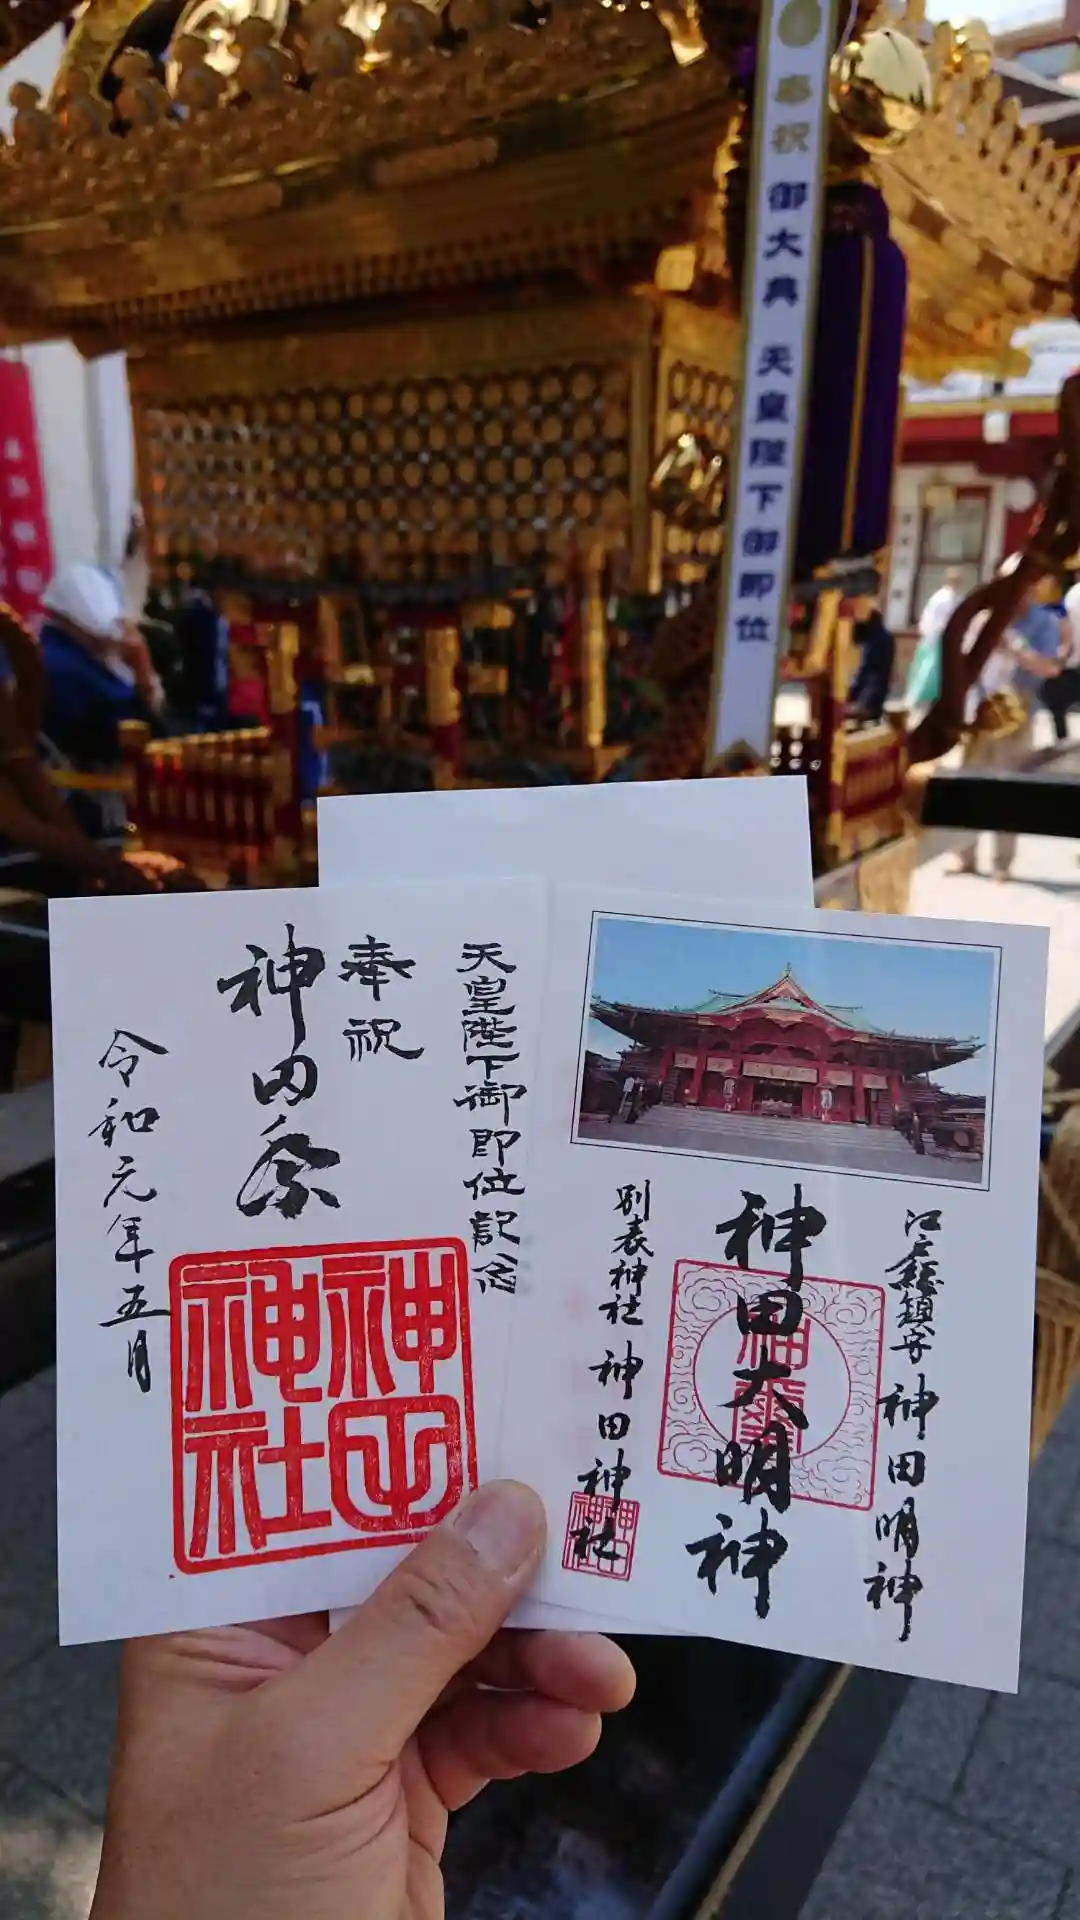 奉祝 御大典 天皇陛下御即位
天皇陛下御即位記念
奉祝
神田祭
令和元年五月
神田神社
江戸総鎮守 神田明神
神田大明神
別表神社 神田神社
神田神社